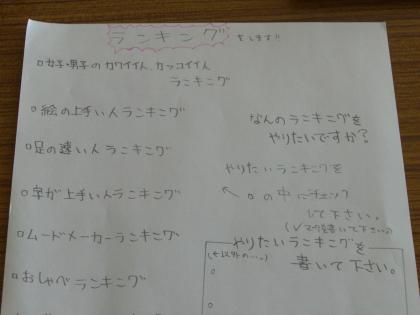 ランキング をします!!
□女子・男子のカワイイ人、カッコイイ人
ランキング
□絵の上手い人ランキング
□足の速い人ランキング
□字が上手い人ランキング
□ムードメーカーランキング
□おしゃべランキング
なんのランキングを
やりたいですか?
やりたいランキングを
←□の中にチェック
して下さい。
(✓マーク書いて下さい。)
やりたいランキングを
(←以外の…。)
書いて下さい。